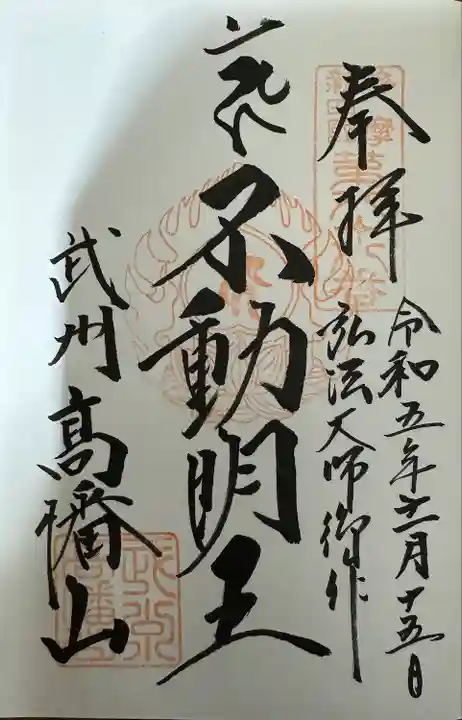 奉拝
令和五年十二月十五日
弘法大師御作
不動明王
武州高幡山